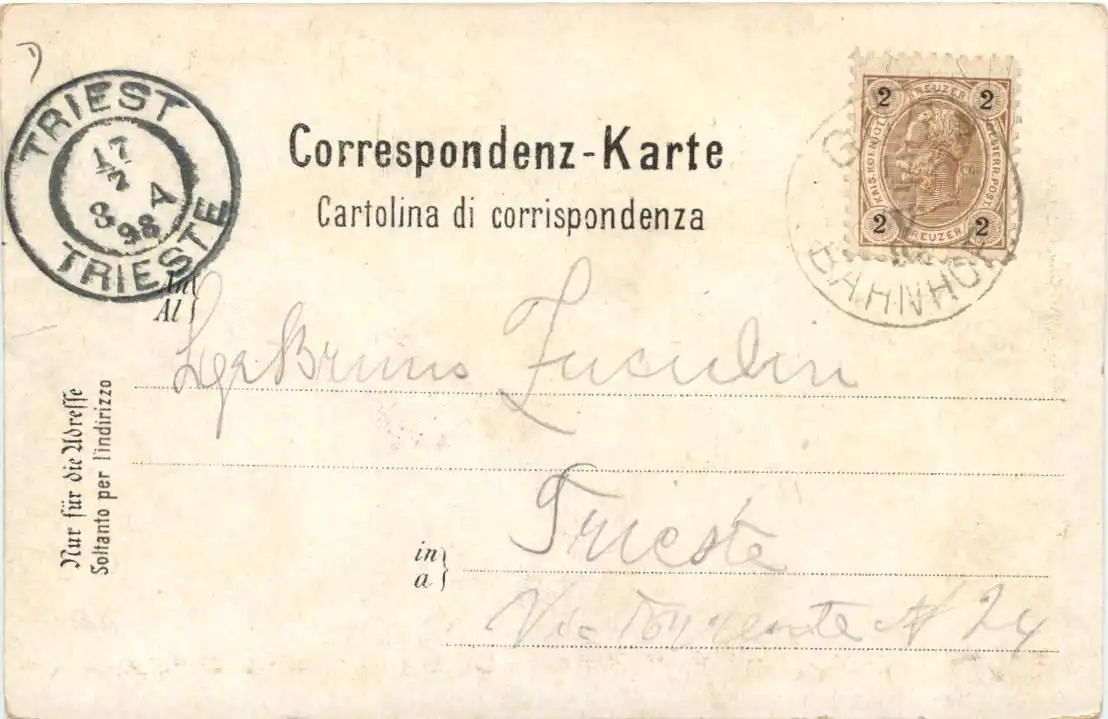 TRIEST
17
8 98 Y
TRIESTE
Correspondenz-Karte
Cartolina di corrispondenza
2 KREUZER 2
KAIS. KOENIGL. OESTERR. POST
2 KREUZER 2
BAHNHOF
An
Al
Bruno
Nur für die Adresse
Soltanto per l'indirizzo
in
a
Trieste
Via Torrente N 24